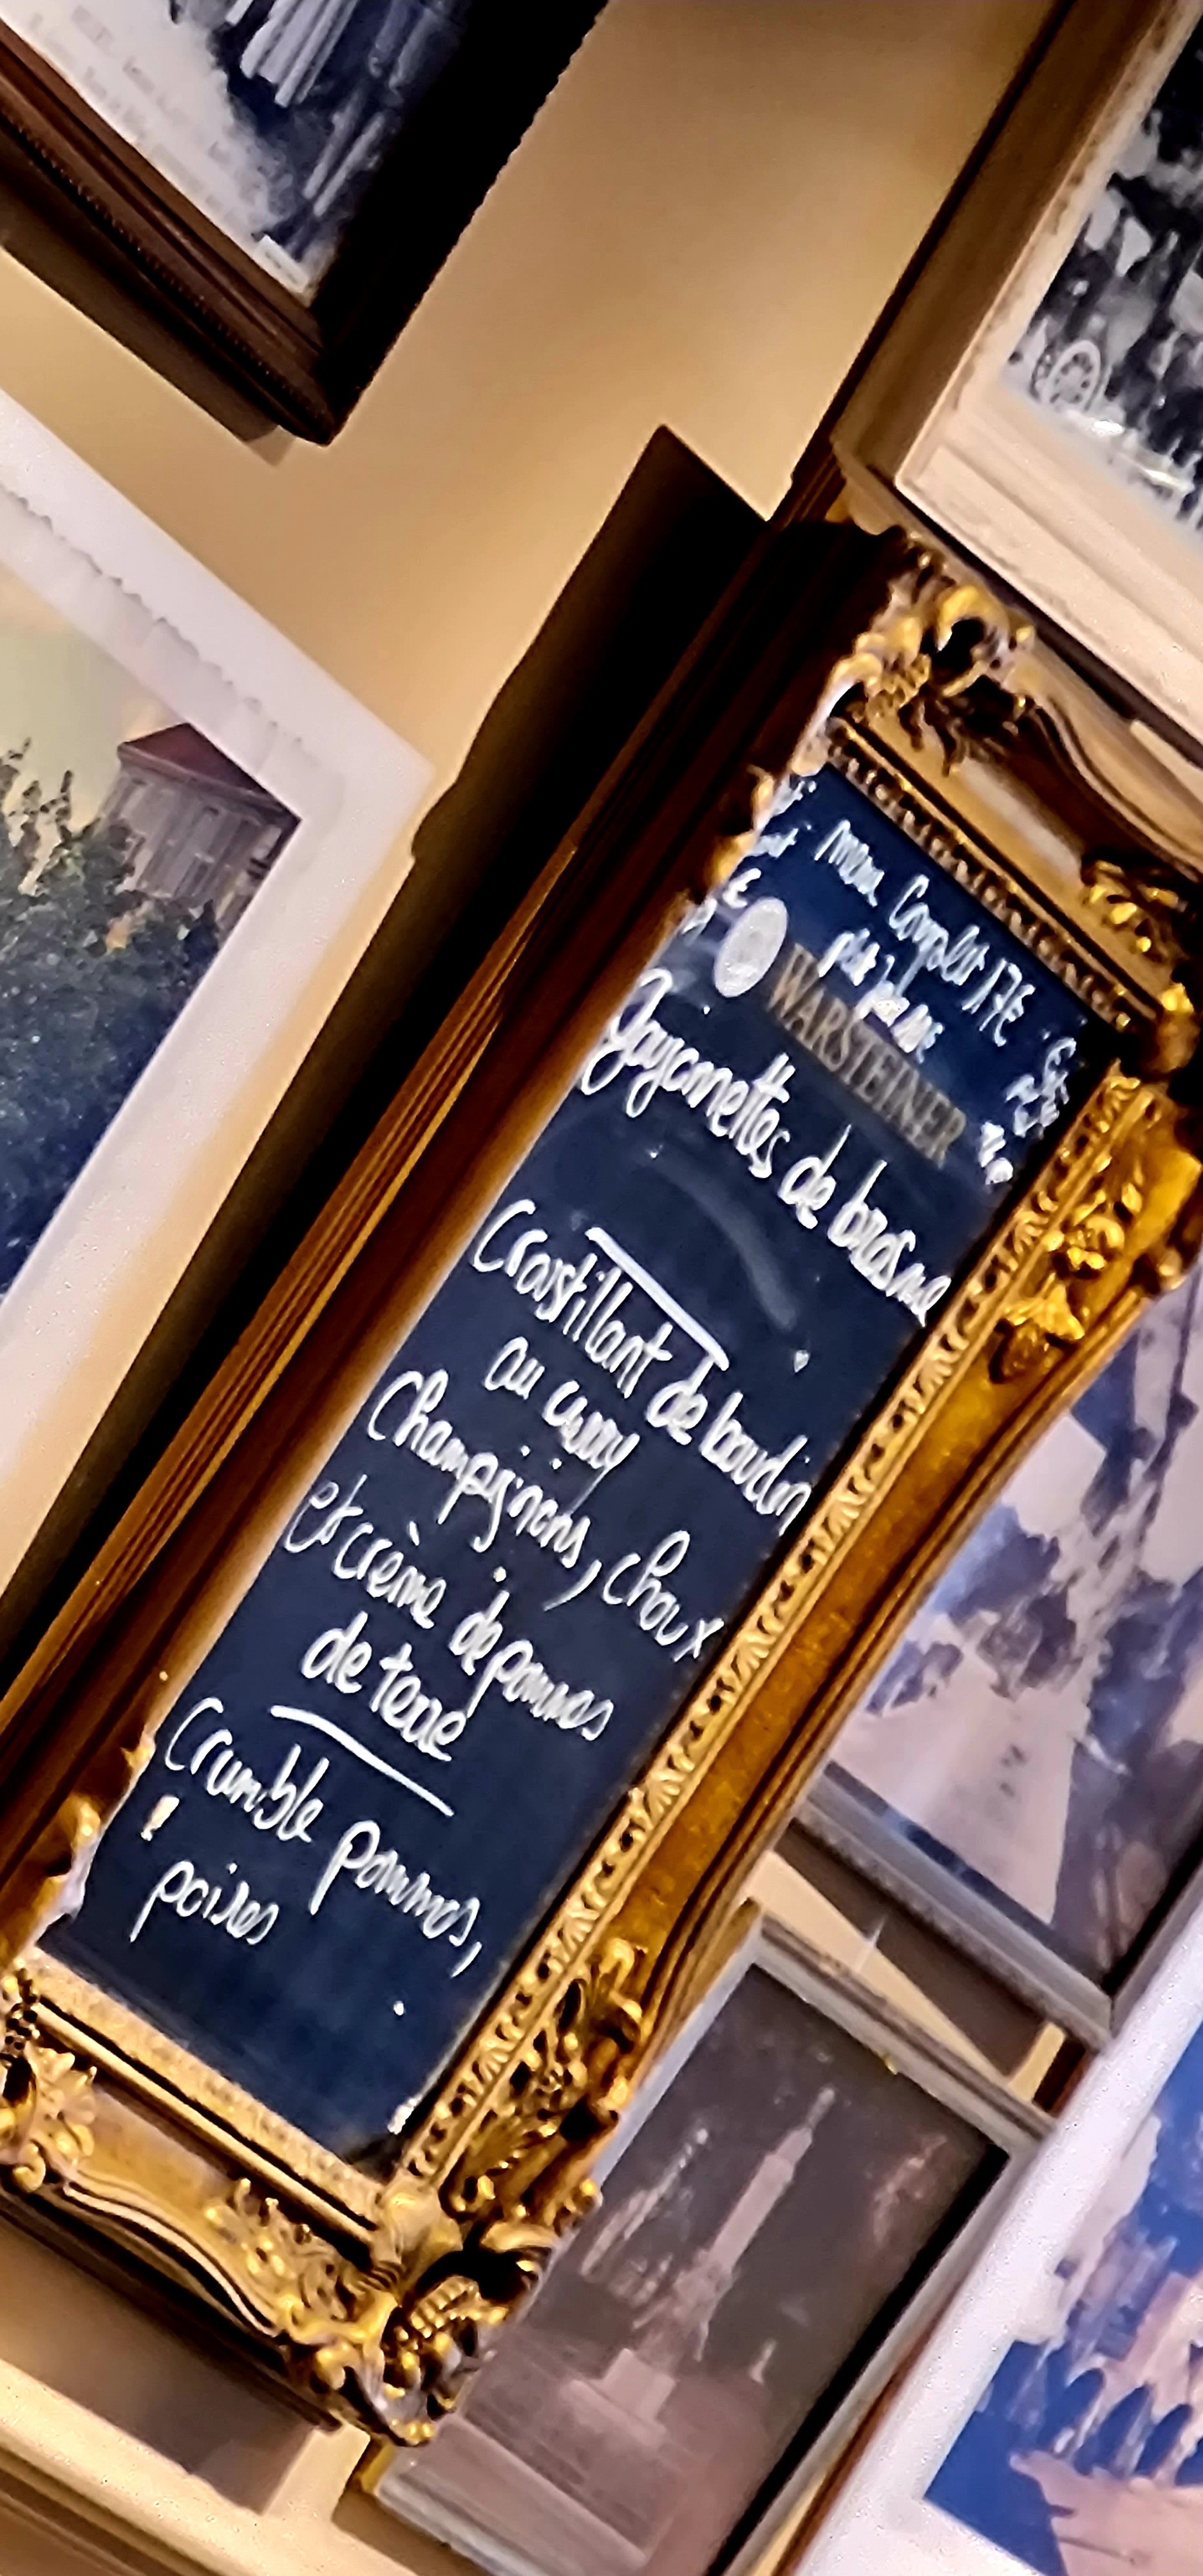 Menu Complet 17€
WARSTEINER
de brosme
Croustillant de boudin
au curry
Champignons, choux
et crème de pommes
de terre
Crumble pommes,
poires